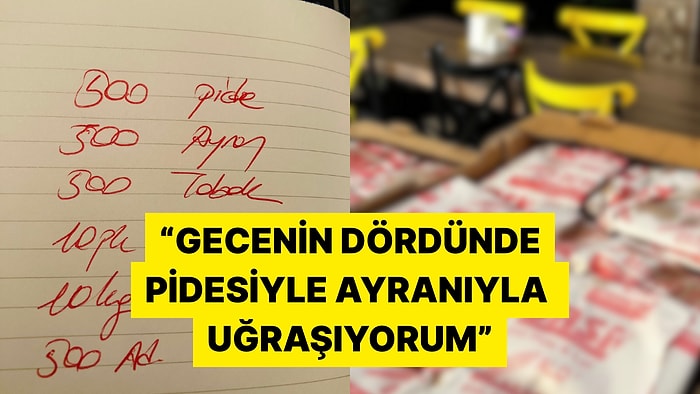 500 pide
500 Ayran
500 Tabak
10 pk
10 kg
500 Ad.
“GECENİN DÖRDÜNDE
PİDESİYLE AYRANIYLA
UĞRAŞIYORUM”